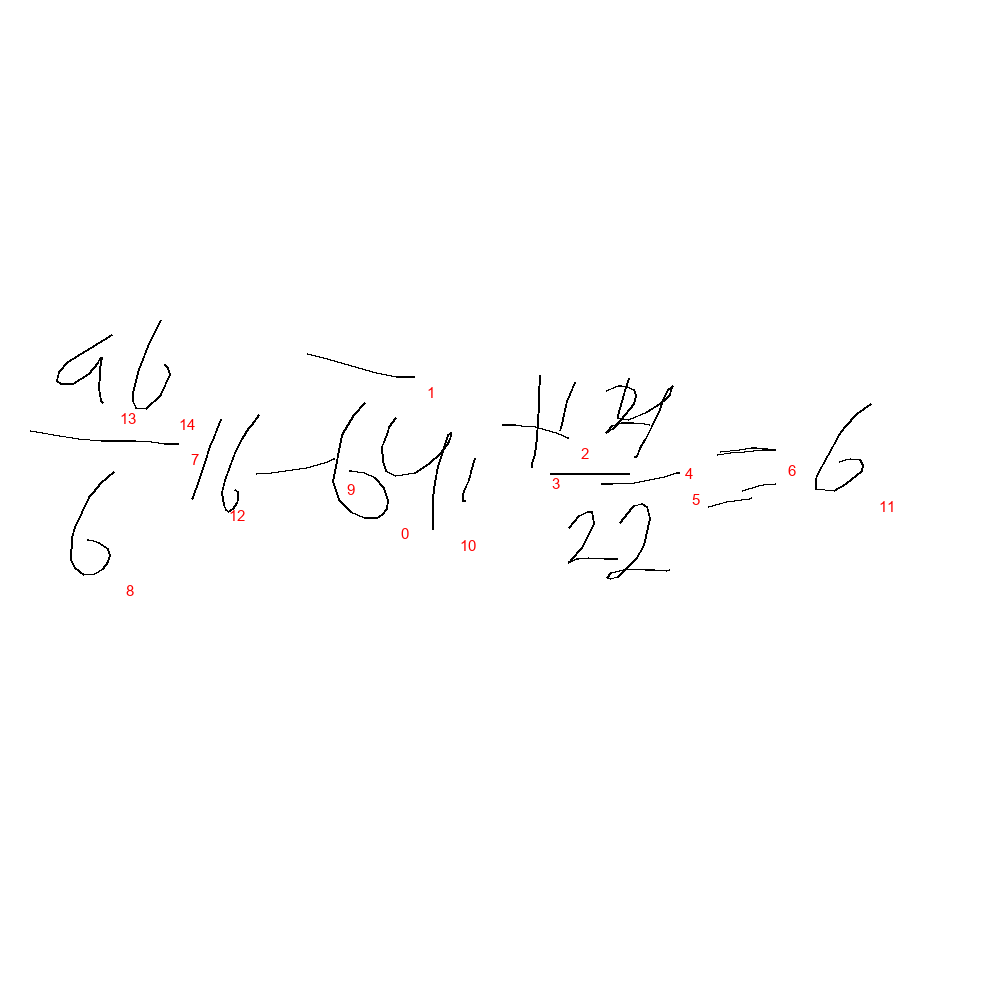 96/6 16 - 64 1 + 124/22 = 6
13 14 7 8 12 9 0 10 1 2 3 4 5 6 11